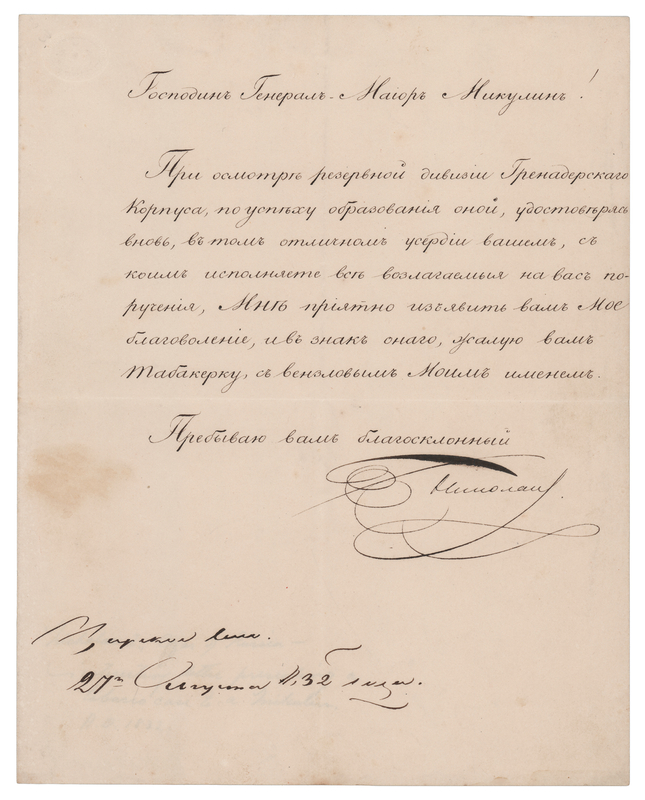 Господинъ Генералъ-Маіоръ Микулинъ!
При осмотрѣ резервной дивизіи Гренадерскаго
Корпуса, по успѣху образованія оной, удостовѣрясь
вновь, въ томъ отличномъ усердіи вашемъ, съ
коимъ исполняете всѣ возлагаемыя на васъ по-
рученія, Мнѣ пріятно изъявить вамъ Мое
благоволеніе, и въ знакъ онаго, жалую вамъ
табакерку, съ вензловымъ Моимъ именемъ.
Пребываю вамъ благосклонный
Николай.
Царское Село.
27го Августа 1832 года.